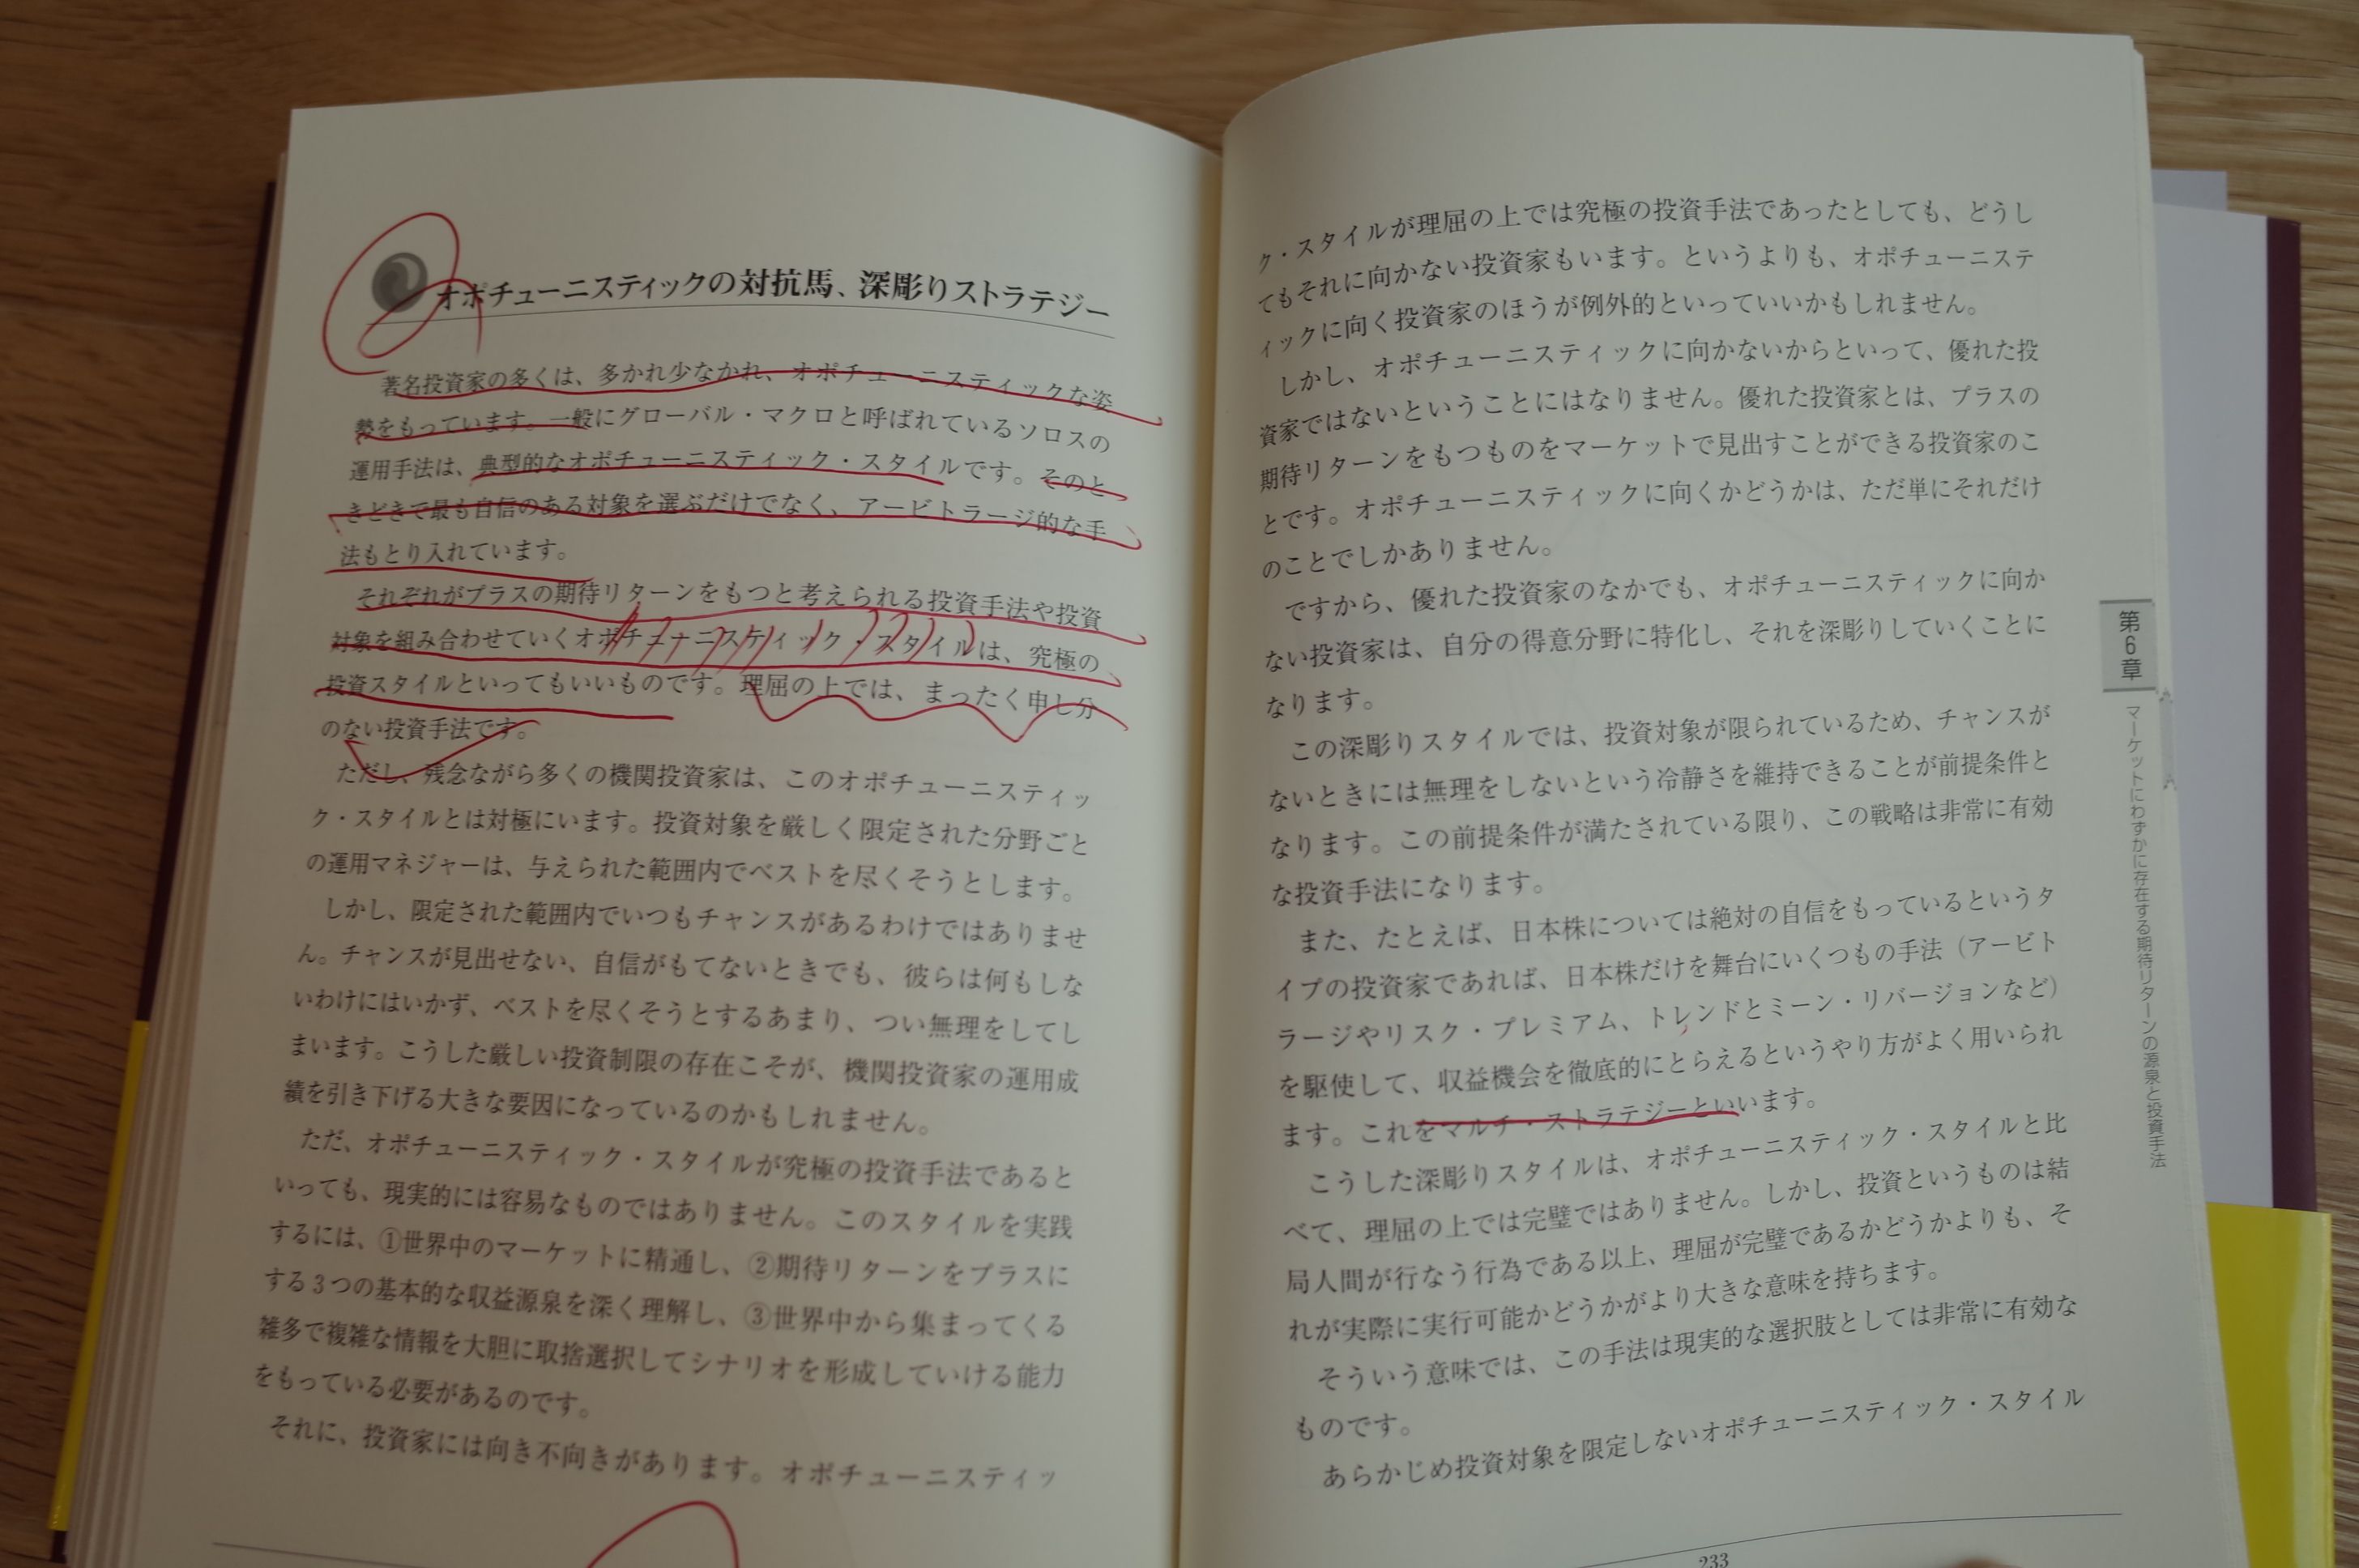 オポチューニスティックの対抗馬、深彫りストラテジー
著名投資家の多くは、多かれ少なかれ、オポチューニスティックな姿
勢をもっています。一般にグローバル・マクロと呼ばれているソロスの
運用手法は、典型的なオポチューニスティック・スタイルです。そのと
きどきで最も自信のある対象を選ぶだけでなく、アービトラージ的な手
法もとり入れています。
それぞれがプラスの期待リターンをもつと考えられる投資手法や投資
対象を組み合わせていくオポチューニスティック・スタイルは、究極の
投資スタイルといってもいいものです。理屈の上では、まったく申し分
のない投資手法です。
ただし、残念ながら多くの機関投資家は、このオポチューニスティッ
ク・スタイルとは対極にいます。投資対象を厳しく限定された分野ごと
の運用マネジャーは、与えられた範囲内でベストを尽くそうとします。
しかし、限定された範囲内でいつもチャンスがあるわけではありませ
ん。チャンスが見出せない、自信がもてないときでも、彼らは何もしな
いわけにはいかず、ベストを尽くそうとするあまり、つい無理をしてし
まいます。こうした厳しい投資制限の存在こそが、機関投資家の運用成
績を引き下げる大きな要因になっているのかもしれません。
ただ、オポチューニスティック・スタイルが究極の投資手法であると
いっても、現実的には容易なものではありません。このスタイルを実践
するには、①世界中のマーケットに精通し、②期待リターンをプラスに
する3つの基本的な収益源泉を深く理解し、③世界中から集まってくる
雑多で複雑な情報を大胆に取捨選択してシナリオを形成していける能力
をもっている必要があるのです。
それに、投資家には向き不向きがあります。オポチューニスティッ
ク・スタイルが理屈の上では究極の投資手法であったとしても、どうし
てもそれに向かない投資家もいます。というよりも、オポチューニステ
ィックに向く投資家のほうが例外的といっていいかもしれません。
しかし、オポチューニスティックに向かないからといって、優れた投
資家ではないということにはなりません。優れた投資家とは、プラスの
期待リターンをもつものをマーケットで見出すことができる投資家のこ
とです。オポチューニスティックに向くかどうかは、ただ単にそれだけ
のことでしかありません。
ですから、優れた投資家のなかでも、オポチューニスティックに向か
ない投資家は、自分の得意分野に特化し、それを深彫りしていくことに
なります。
この深彫りスタイルでは、投資対象が限られているため、チャンスが
ないときには無理をしないという冷静さを維持できることが前提条件と
なります。この前提条件が満たされている限り、この戦略は非常に有効
な投資手法になります。
また、たとえば、日本株については絶対の自信をもっているというタ
イプの投資家であれば、日本株だけを舞台にいくつもの手法（アービト
ラージやリスク・プレミアム、トレンドとミーン・リバージョンなど）
を駆使して、収益機会を徹底的にとらえるというやり方がよく用いられ
ます。これをマルチ・ストラテジーといいます。
こうした深彫りスタイルは、オポチューニスティック・スタイルと比
べて、理屈の上では完璧ではありません。しかし、投資というものは結
局人間が行なう行為である以上、理屈が完璧であるかどうかよりも、そ
れが実際に実行可能かどうかがより大きな意味を持ちます。
そういう意味では、この手法は現実的な選択肢としては非常に有効な
ものです。
あらかじめ投資対象を限定しないオポチューニスティック・スタイル
第6章
マーケットにわずかに存在する期待リターンの源泉と投資手法
233